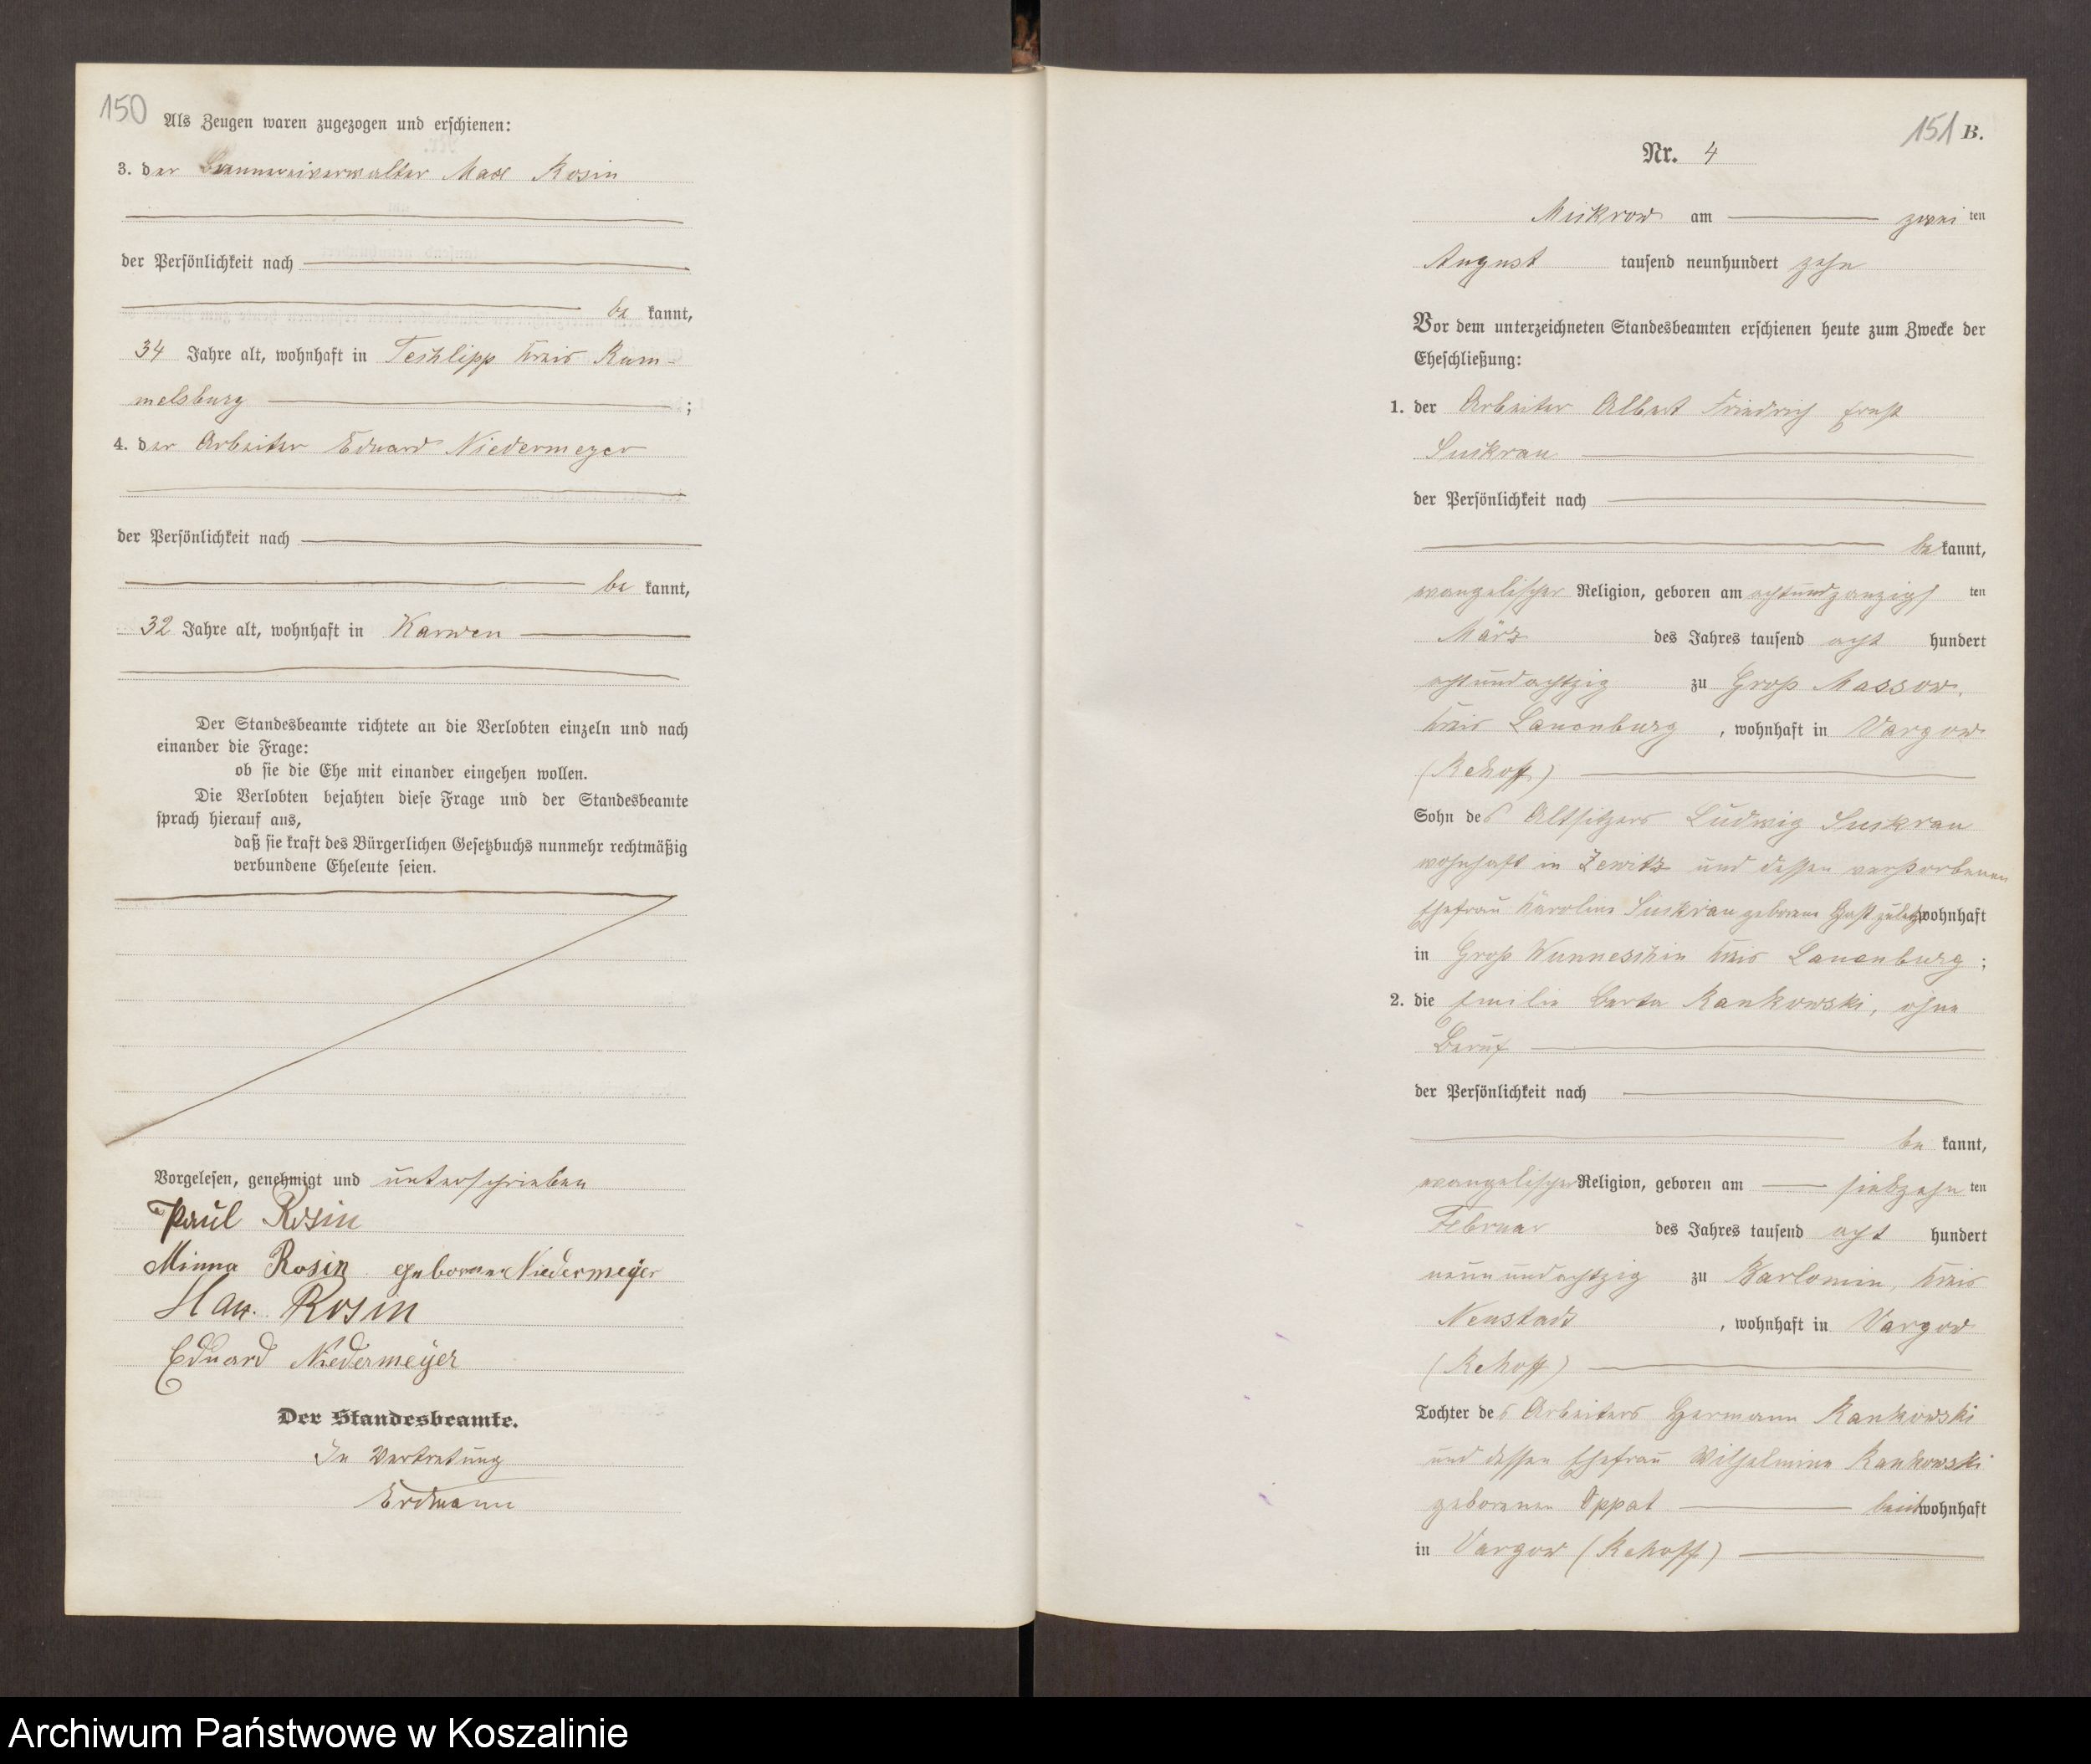 150
Als Zeugen waren zugezogen und erschienen:
3. der Brennereiverwalter Max Rosin
der Persönlichkeit nach
be kannt,
34 Jahre alt, wohnhaft in Teschlipp Kreis Rum-
melsburg ;
4. der Arbeiter Eduard Niedermeyer
der Persönlichkeit nach
be kannt,
32 Jahre alt, wohnhaft in Karwen
Der Standesbeamte richtete an die Verlobten einzeln und nach
einander die Frage:
ob sie die Ehe mit einander eingehen wollen.
Die Verlobten bejahten diese Frage und der Standesbeamte
sprach hierauf aus,
daß sie kraft des Bürgerlichen Gesetzbuchs nunmehr rechtmäßig
verbundene Eheleute seien.
Vorgelesen, genehmigt und unterschrieben
Paul Rosin
Minna Rosin geborene Niedermeyer
Max Rosin
Eduard Niedermeyer
Der Standesbeamte.
In Vertretung
Erdmann
151 B.
Nr. 4
Mickrow am zwei ten
August tausend neunhundert zehn
Vor dem unterzeichneten Standesbeamten erschienen heute zum Zwecke der
Eheschließung:
1. der Arbeiter Albert Friedrich Ernst
Suckrau
der Persönlichkeit nach
be kannt,
evangelischer Religion, geboren am achtundzwanzigs ten
März des Jahres tausend acht hundert
achtundachtzig zu Groß Massow,
Kreis Lauenburg , wohnhaft in Vargow
(Rehoff)
Sohn des Altsitzers Ludwig Suckrau
wohnhaft in Zewitz und dessen verstorbenen
Ehefrau Karoline Suckrau geborene Gast zuletzt wohnhaft
in Groß Wunneschin Kreis Lauenburg ;
2. die Emilie Berta Rankowski, ohne
Beruf
der Persönlichkeit nach
be kannt,
evangelischer Religion, geboren am siebzehn ten
Februar des Jahres tausend acht hundert
neunundachtzig zu Barlomin, Kreis
Neustadt , wohnhaft in Vargow
(Rehoff)
Tochter des Arbeiters Hermann Rankowski
und dessen Ehefrau Wilhelmine Rankowski
geborenen Oppat beide wohnhaft
in Vargow (Rehoff)
Archiwum Państwowe w Koszalinie